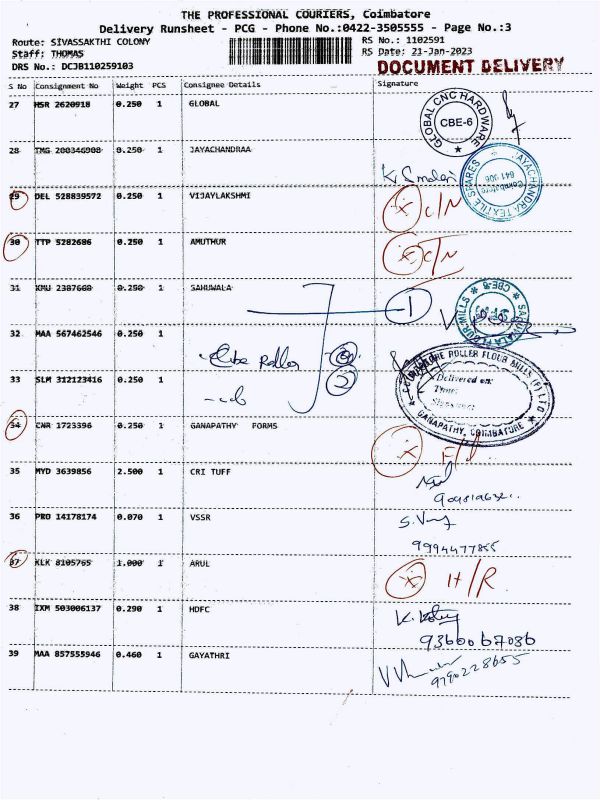 THE PROFESSIONAL COURIERS, Coimbatore
Delivery Runsheet - PCG - Phone No.:0422-3505555 - Page No.:3
Route: SIVASSAKTHI COLONY
Staff: THOMAS
DRS No.: DCJB110259103
RS No.: 1102591
RS Date: 21-Jan-2023
DOCUMENT DELIVERY
S No Consignment No Weight PCS Consignee Details Signature
27 HSR 2620918 0.250 1 GLOBAL
GLOBAL CNC HARDWARE
CBE-6
28 TMG 200346908 0.250 1 JAYACHANDRAA
JAYACHANDRA TEXTILE SPARES
Coimbatore
641 006
29 DEL 528839572 0.250 1 VIJAYLAKSHMI C/N
30 TTP 5282686 0.250 1 AMUTHUR C/N
31 KMU 2387668 0.250 1 SAHUWALA 1
SAHUWALA FLOUR MILLS
CBE-6
32 MAA 567462546 0.250 1
Cbe Roller
33 SLM 312123416 0.250 1
2
COIMBATORE ROLLER FLOUR MILLS (P) LTD
Delivered on:
Time:
GANAPATHY, COIMBATORE
34 CNR 1723396 0.250 1 GANAPATHY FORMS
35 MYD 3639856 2.500 1 CRI TUFF
36 PRO 14178174 0.070 1 VSSR
9994477855
37 KLK 8105765 1.000 1 ARUL H/R
38 IXM 503006137 0.290 1 HDFC
9366067036
39 MAA 857555946 0.460 1 GAYATHRI
9790228655